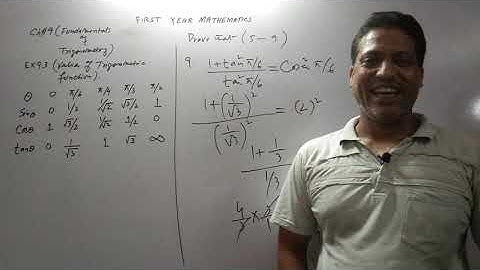 FIRST YEAR MATHEMATICS
Ch#9 (Fundamentals
of
Trigonometry)
EX 9.3 (Value of Trigonometric
function)
θ 0 π/6 π/4 π/3 π/2
Sinθ 0 1/2 1/√2 √3/2 1
Cosθ 1 √3/2 1/√2 1/2 0
tanθ 0 1/√3 1 √3 ∞
Prove that (5-9)
9. 1+tan²π/6 / tan²π/6 = Cosec²π/6
1+(1/√3)² / (1/√3)² = (2)²
1+1/3 / 1/3 =
4/3 ×